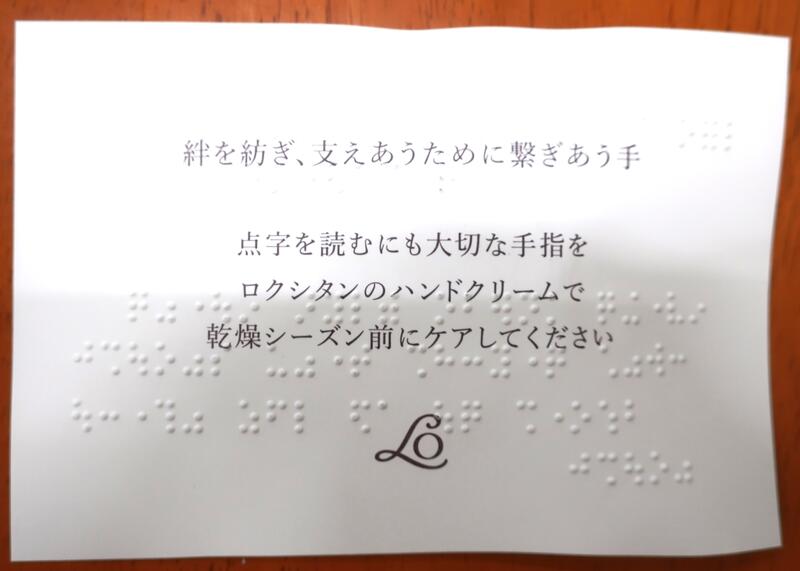 絆を紡ぎ、支えあうために繋ぎあう手
点字を読むにも大切な手指を
ロクシタンのハンドクリームで
乾燥シーズン前にケアしてください
LO